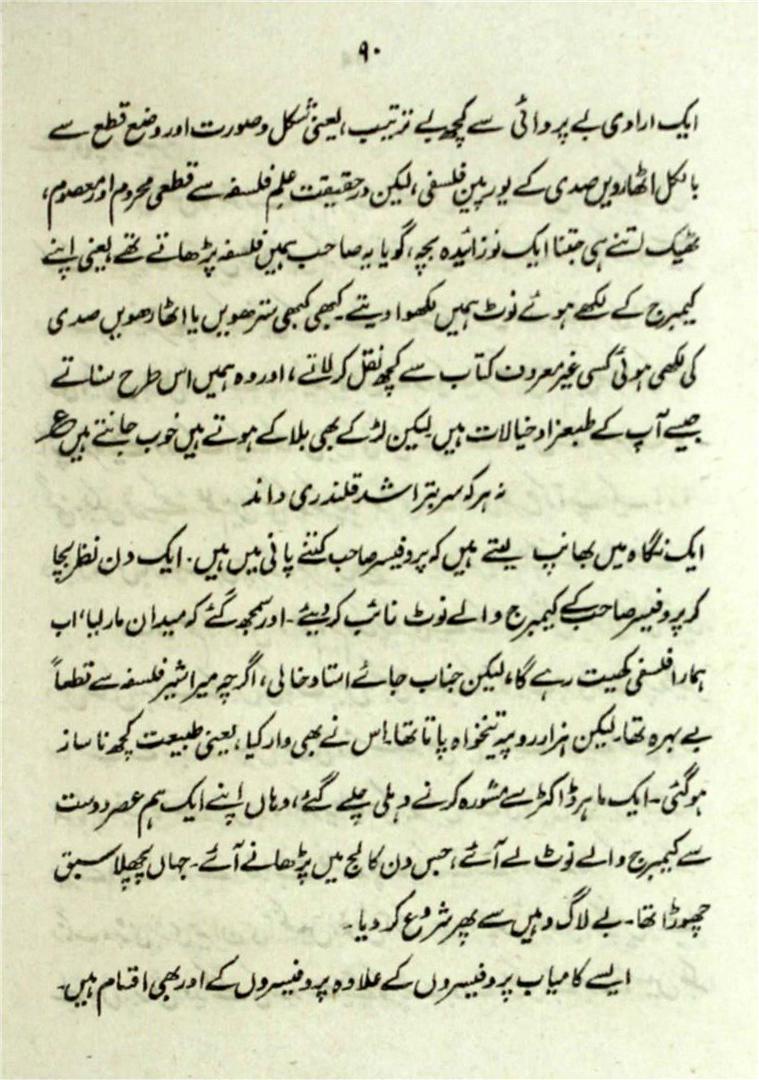 ۹۰
ایک ارادی بے پروائی سے کچھ بے ترتیب، یعنی شکل و صورت اور وضع قطع سے
بالکل اٹھارویں صدی کے یورپین فلسفی، لیکن درحقیقت علمِ فلسفہ سے قطعی محروم اور معصوم،
ٹھیک اتنے ہی جتنا ایک نوزائیدہ بچہ، گویا یہ صاحب ہمیں فلسفہ پڑھاتے تھے یعنی اپنے
کیمبرج کے لکھے ہوئے نوٹ ہمیں لکھوا دیتے۔ کبھی کبھی سترھویں یا اٹھارھویں صدی
کی لکھی ہوئی کسی غیر معروف کتاب سے کچھ نقل کر لاتے، اور وہ ہمیں اس طرح سناتے
جیسے آپ کے طبعزاد خیالات ہیں لیکن لڑکے بھی بلا کے ہوتے ہیں خوب جانتے ہیں ع
نہ ہر کہ سر بتراشد قلندری داند
ایک نگاہ میں بھانپ لیتے ہیں کہ پروفیسر صاحب کتنے پانی میں ہیں۔ ایک دن نظر بچا
کر پروفیسر صاحب کے کیمبرج والے نوٹ غائب کر دیئے۔ اور سمجھ گئے کہ میدان مار لیا، اب
ہمارا فلسفی کھیت رہے گا، لیکن جناب جائے استاد خالی، اگرچہ میرا شیر فلسفہ سے قطعاً
بے بہرہ تھا۔ لیکن ہزار روپیہ تنخواہ پاتا تھا۔ اس نے بھی وار کیا، یعنی طبیعت کچھ ناساز
ہو گئی۔ ایک ماہر ڈاکٹر سے مشورہ کرنے دہلی چلے گئے، وہاں اپنے ایک ہم عصر دوست
سے کیمبرج والے نوٹ لے آئے، جس دن کالج میں پڑھانے آئے۔ جہاں پچھلا سبق
چھوڑا تھا۔ بے لاگ وہیں سے پھر شروع کر دیا۔
ایسے کامیاب پروفیسروں کے علاوہ پروفیسروں کے اور بھی اقسام ہیں۔